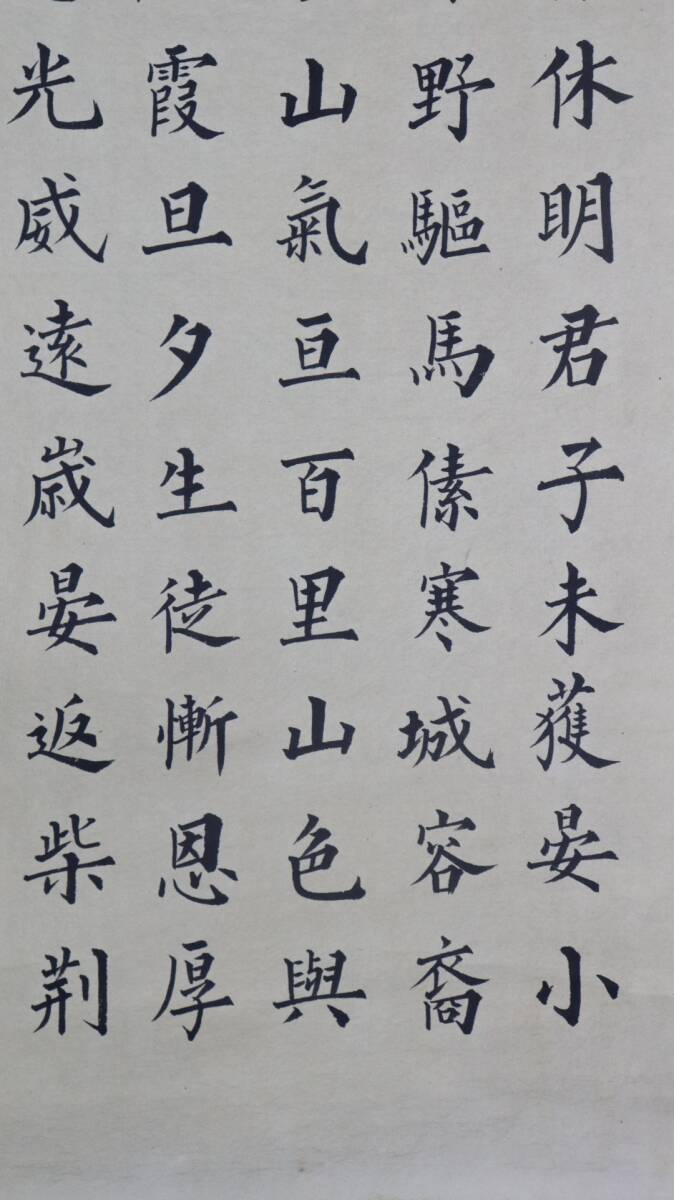 休明君子未獲晏小
野驅馬傃寒城容裔
山氣亘百里山色與
霞旦夕生徒慚恩厚
光威遠歳晏返柴荊